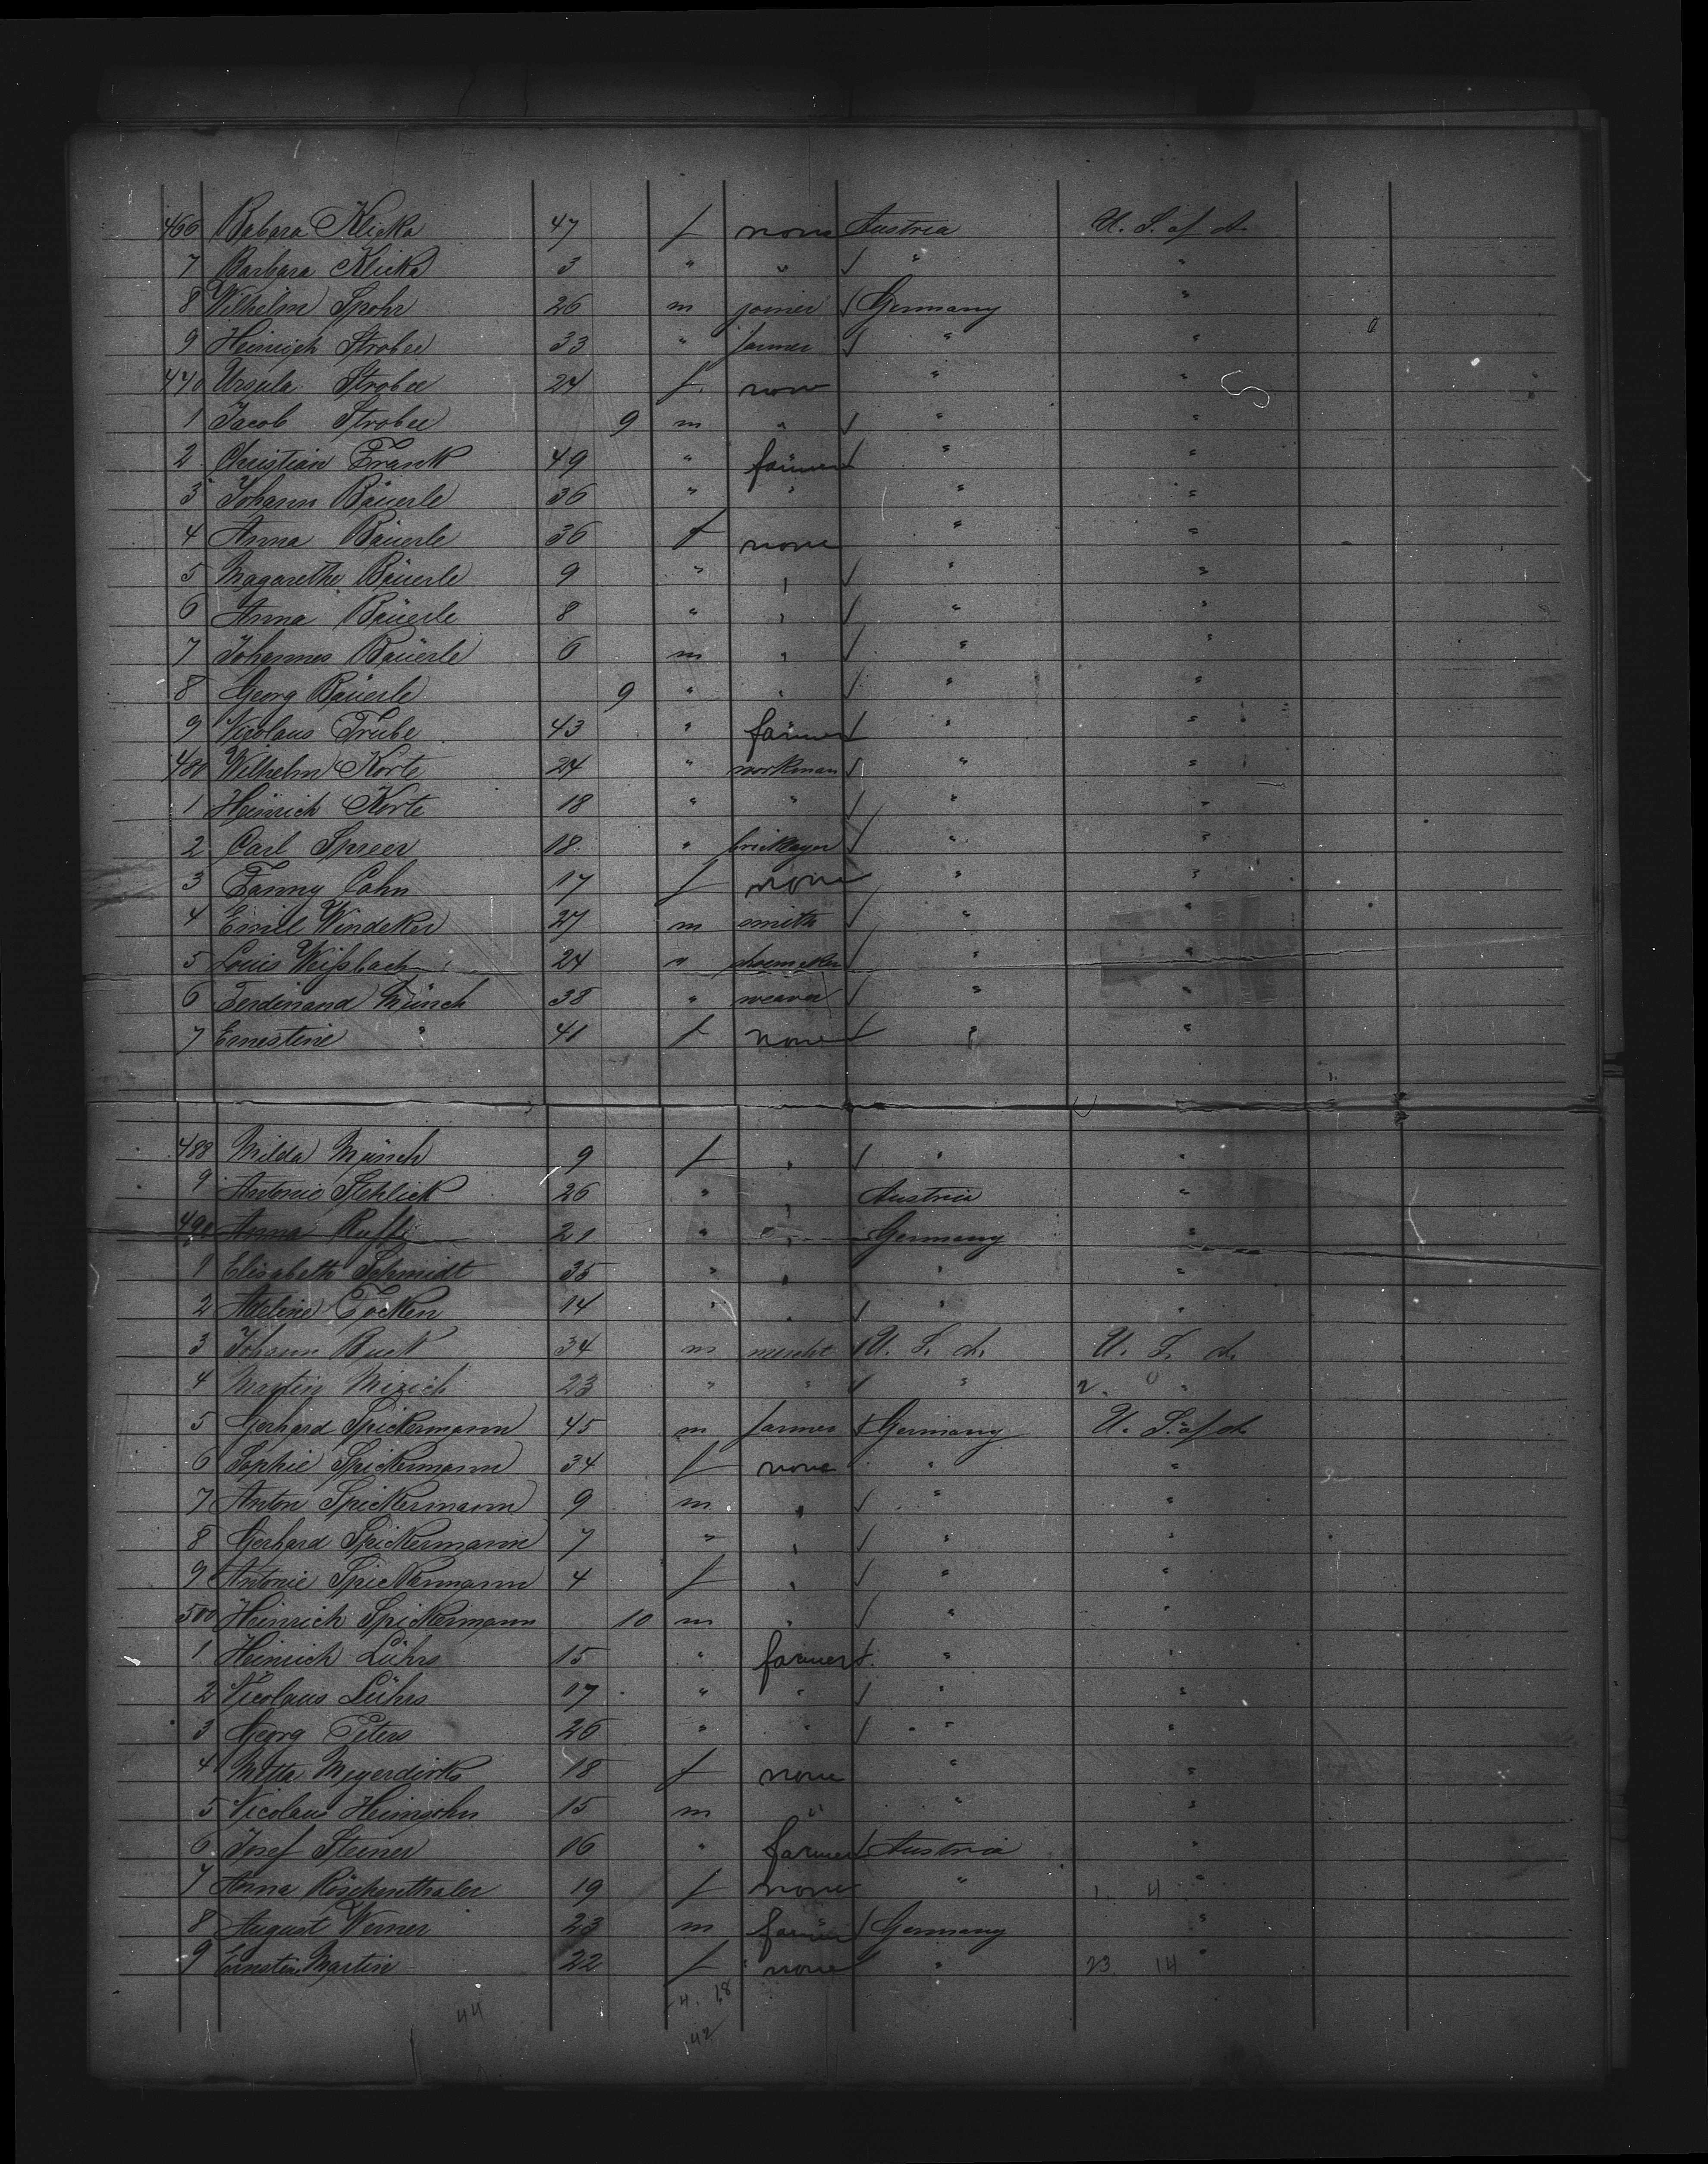 466 Babara Klicka 47 f none Austria U. S. of A.
7 Barbara Klicka 3 " " "  "
8 Wilhelm Spohr 26 m joiner Germany "
9 Heinrich Strobel 33 " farmer " "
470 Ursula Strobel 24 f. none " "
1 Jacob Strobel 9 m " " "
2 Christian Frank 49 " farmer " "
3 Johann Bäuerle 36 " " " "
4 Anna Bäuerle 36 f none " "
5 Magarethe Bäuerle 9 " " " "
6 Anna Bäuerle 8 " " " "
7 Johannes Bäuerle 6 m " " "
8 Georg Bäuerle 9 " " " "
9 Nicolaus Trube 43 " farmer " "
480 Wilhelm Korte 24 " workman " "
1 Heinrich Korte 18 " " " "
2 Carl Spreer 18 " bricklayer " "
3 Fanny Cahn 17 f none " "
4 Emil Windeker 27 m smith " "
5 Louis Weißbach 24 " shoemaker " "
6 Ferdinand Münch 38 " weaver " "
7 Ernestine " 41 f none " "
488 Milda Münch 9 f " " "
9 Antonie Stehlick 26 " " Austria "
490 Anna Ruffi 21 " " Germany "
1 Elisabeth Schmidt 35 " " " "
2 Adeline Focken 14 " " " "
3 Johann Buck 34 m mercht U. S. A. U. S. A.
4 Martin 23 " " " 2. 0 "
5 Gerhard Spickermann 45 m farmer Germany U. S. of A.
6 Sophie Spickermann 34 f none " "
7 Anton Spickermann 9 m " " "
8 Gerhard Spickermann 7 " " " "
9 Antonie Spickermann 4 f " " "
500 Heinrich Spickermann 10 m " " "
1 Heinrich Lührs 15 " farmer " "
2 Nicolaus Lührs 17 " " " "
3 Georg Peters 26 " " " "
4 Metta Meyerdirks 18 f none " "
5 Nicolaus Heinsohn 15 m " " "
6 Josef Steiner 16 " farmer Austria "
7 Anna Röschenthaler 19 f none " 1. 4 "
8 August Werner 23 m farmer Germany "
9 Martin 22 f none " 23 14 "
4. 18
44
42